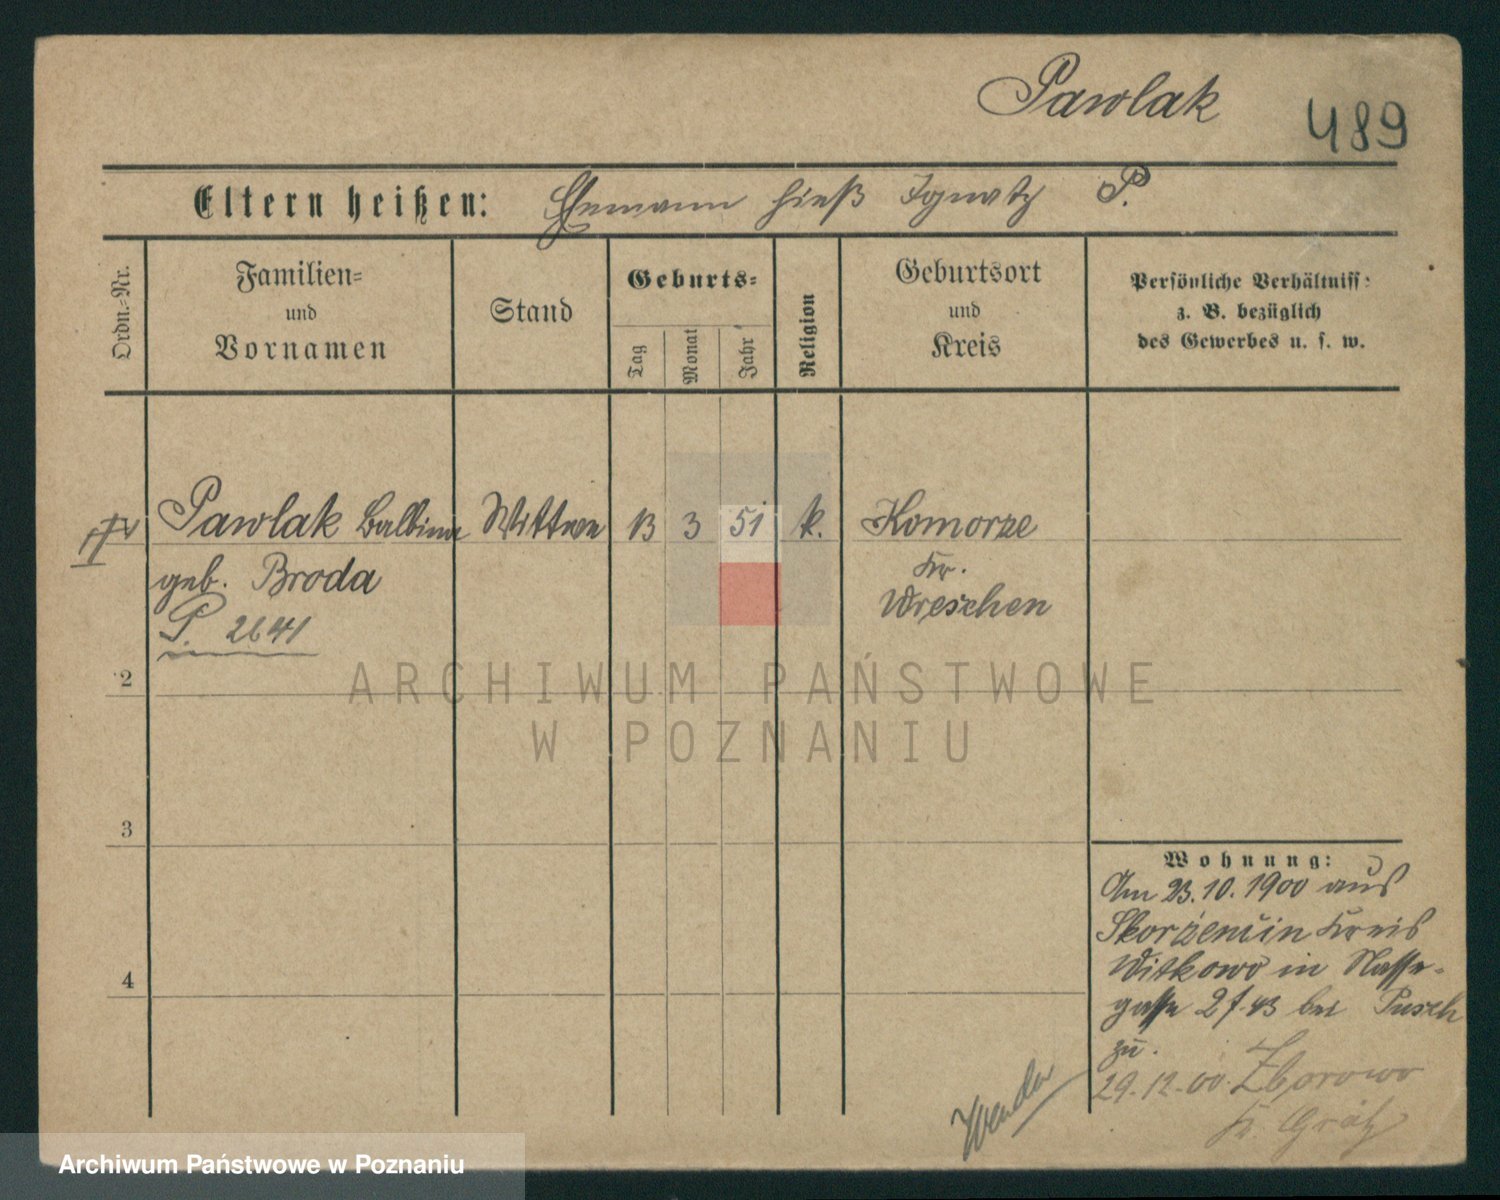 Pawlak
489
Eltern heißen: Ehemann hieß Ignatz P.
Ordn.-Nr.
Familien-
und
Vornamen
Stand
Geburts-
Tag
Monat
Jahr
Religion
Geburtsort
und
Kreis
Persönliche Verhältniss
z. B. bezüglich
des Gewerbes u. s. w.
Pawlak Balbina Wittwe 13 3 51 k. Komorze
geb. Broda Kr.
P. 2641 Wreschen
2
3
4
Wohnung:
Am 23.10.1900 aus
Skorzencin Kreis
Witkowo in Nasse-
gasse 2 bei Pusch
zu.
29.12.00. Zborowo
Kr. Grätz
Wenda
ARCHIWUM PAŃSTWOWE
W POZNANIU
Archiwum Państwowe w Poznaniu